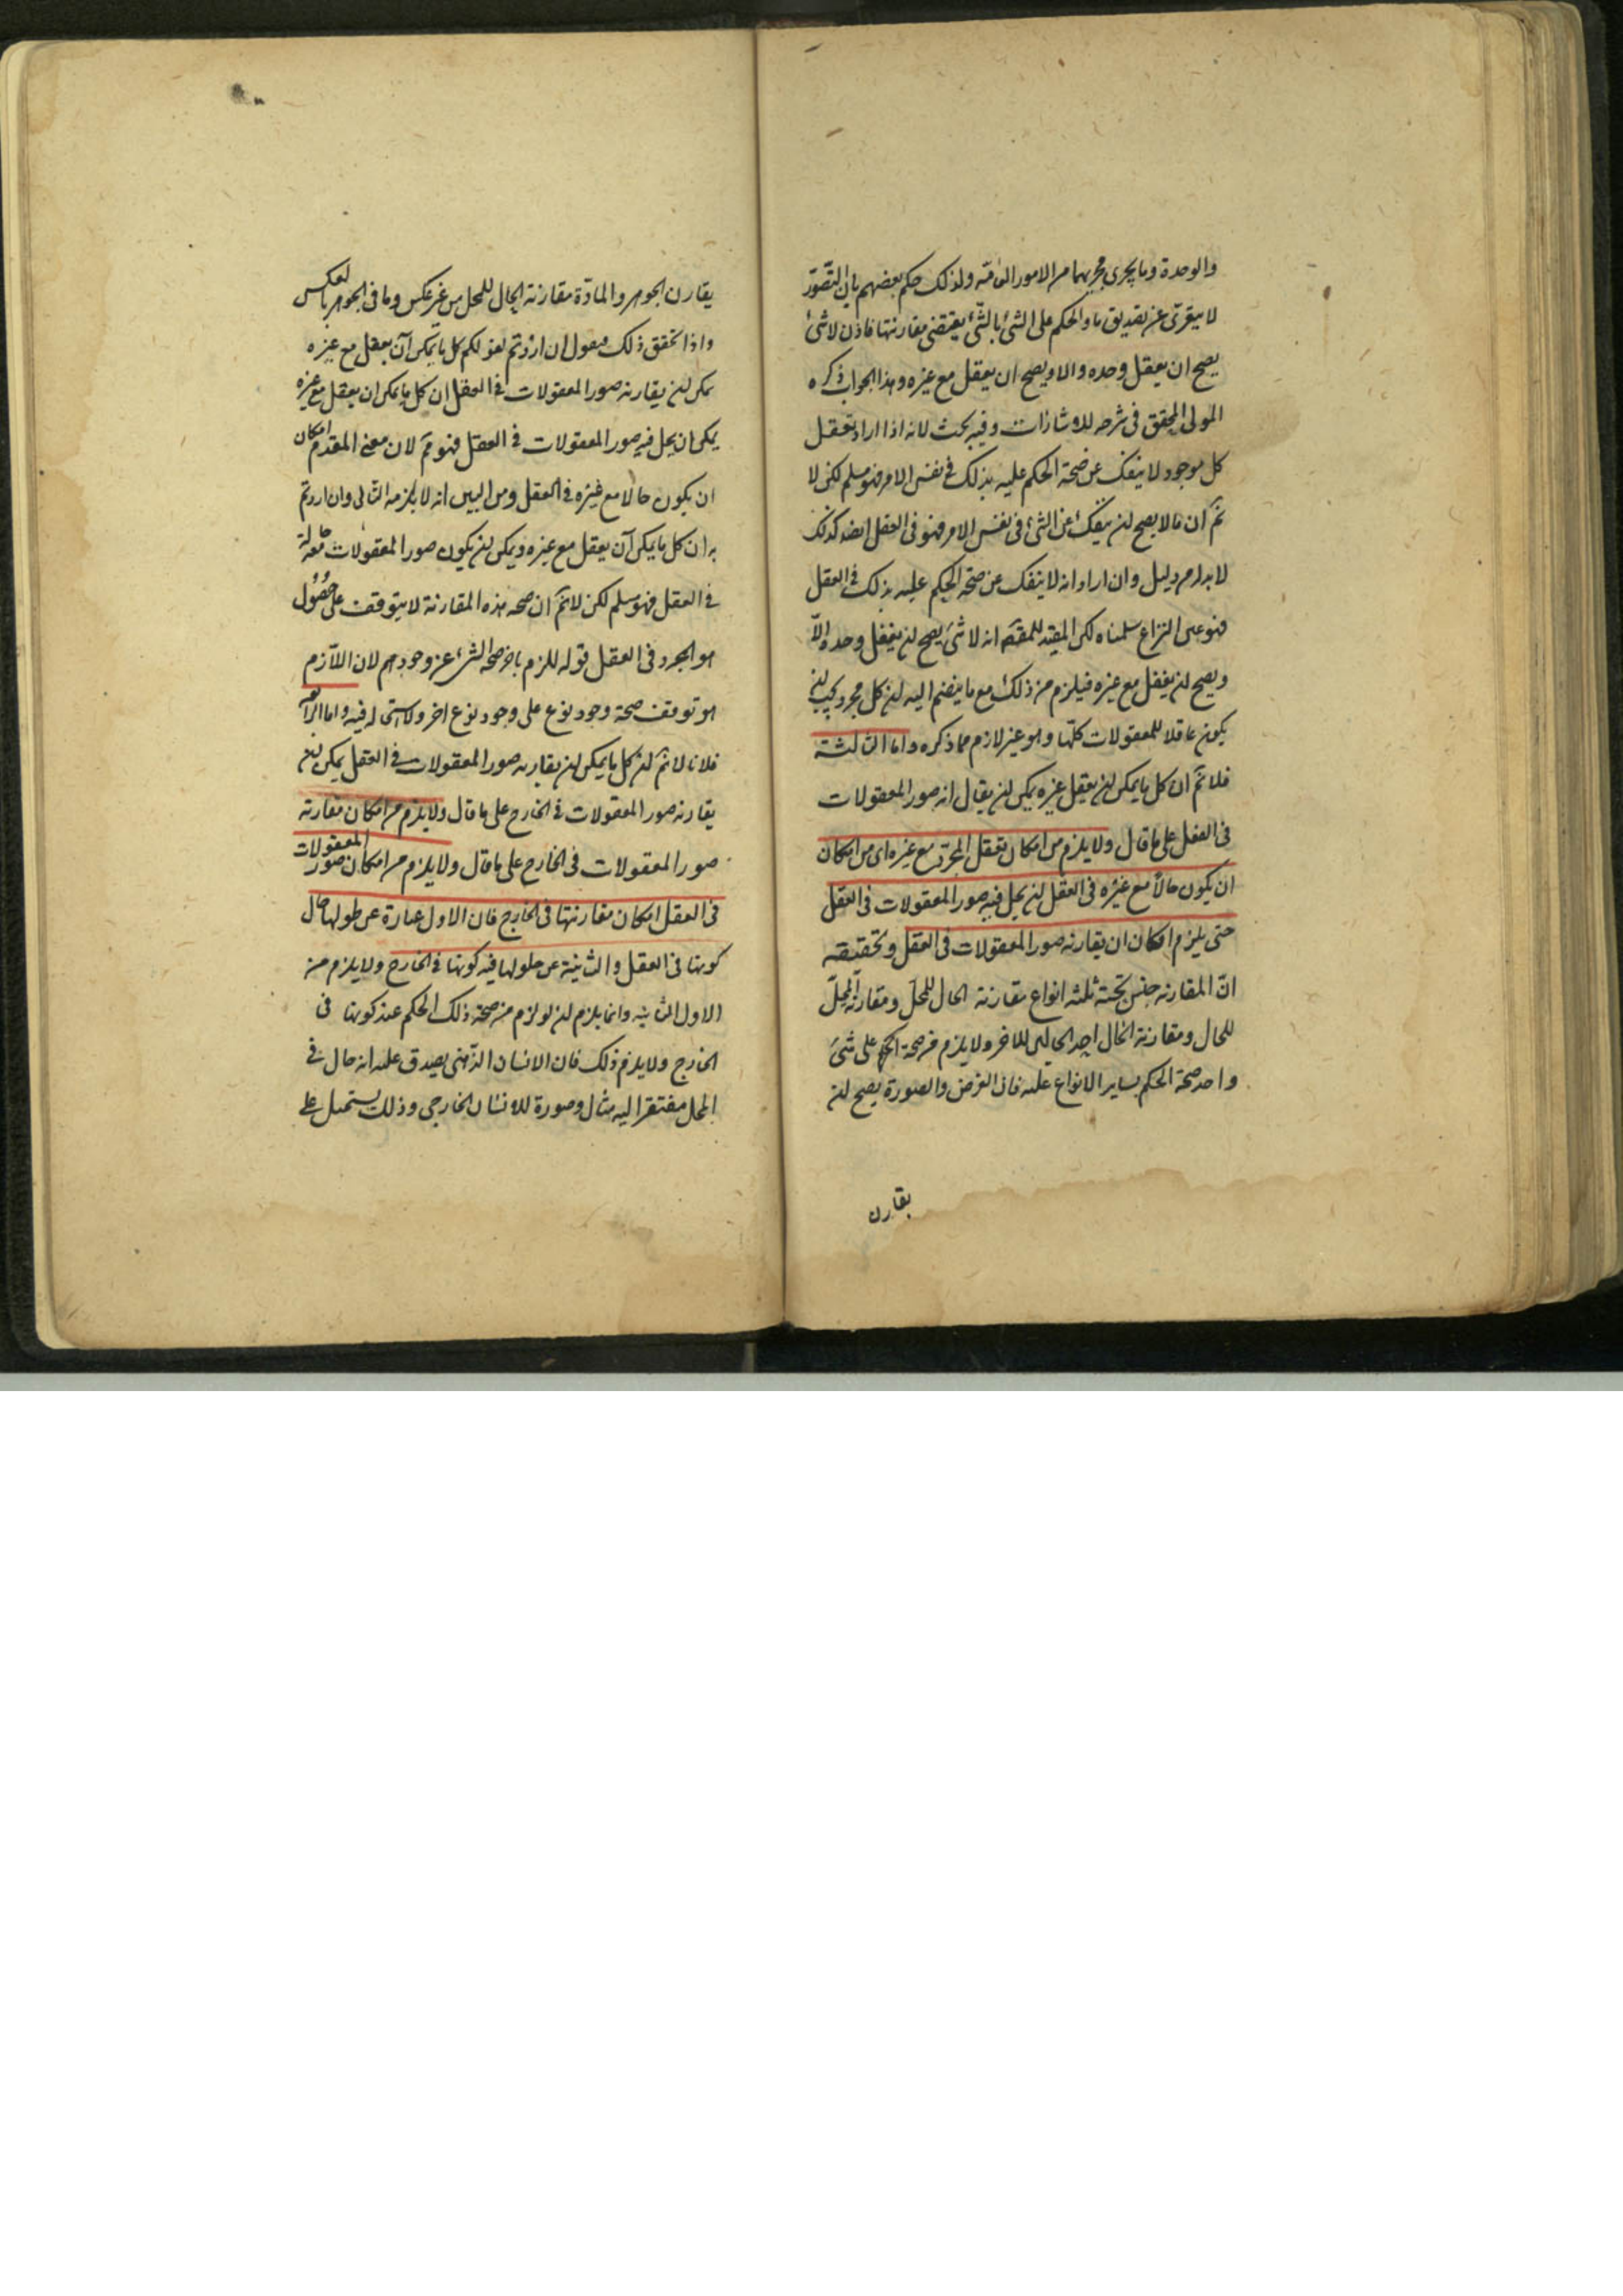 والوحدة وما يجرى مجريهما من الامور العامة ولذلك حكم بعضهم بان التصور
لا يتعرى عن تصديق ما والحكم على الشئ بالشئ يقتضى مقارنتها فاذن لا شئ
يصح ان يعقل وحده والا ويصح ان يعقل مع غيره وهذا الجواب ذكره
المولى المحقق فى شرحه للاشارات وفيه بحث لانه اذا اراد تعقل
كل موجود لا ينفك عن صحة الحكم عليه بذلك فى نفس الامر فهو مسلم لكن لا
نم ان ما لا يصح ان ينفك عن الشئ فى نفس الامر فهو فى العقل ايضا كذلك
لا بد له من دليل وان اراد انه لا ينفك عن صحة الحكم عليه بذلك فى العقل
فهو عين النزاع سلمناه لكن المفيد للمقصد انه لا شئ يصح ان يعقل وحده والا
ويصح ان يعقل مع غيره فيلزم من ذلك مع ما ينضم اليه ان كل مجرد يجب ان
يكون عاقلا للمعقولات كلها وهو غير لازم مما ذكره واما الثالثة
فلا نم ان كل ما يمكن ان يعقل غيره يمكن ان يقال انه صور المعقولات
فى العقل على ما قال ولا يلزم من امكان تعقل المجرد مع غيره اى من امكان
ان يكون حالا مع غيره فى العقل ان يحل فيه صور المعقولات فى العقل
حتى يلزم امكان ان يقارنه صور المعقولات فى العقل وتحقيقه
ان المقارنة جنس تحته ثلثه انواع مقارنة الحال للمحل ومقارنة المحل
للحال ومقارنة الحال احد الحالين للاخر ولا يلزم من صحة الحكم على شئ
واحد صحة الحكم بساير الانواع عليه فان العرض والصورة يصح ان
يقارن
يقارن الجوهر والمادة مقارنة الحال للمحل من غير عكس وما فى الجوهر بالعكس
واذا تحقق ذلك فنقول ان اردتم بقولكم كل ما يمكن ان يعقل مع غيره
يمكن ان يقارنه صور المعقولات فى العقل ان كل ما يمكن ان يعقل مع غيره
يمكن ان يحل فيه صور المعقولات فى العقل فهو مم لان معنى المقدم امكان
ان يكون حالا مع غيره فى العقل ومن البين انه لا يلزمه التالى وان اردتم
به ان كل ما يمكن ان يعقل مع غيره ويمكن ان يكون صور المعقولات حالة معه
فى العقل فهو مسلم لكن لا نم ان صحة هذه المقارنة لا يتوقف على حصول
هو المجرد فى العقل قوله للزم تاخر صحة الشئ عن وجودهم لان اللازم
هو توقف صحة وجود نوع على وجود نوع اخر ولا استحالة فيه واما الرابعة
فلانا لا نم ان كل ما يمكن ان يقارنه صور المعقولات فى العقل يمكن ان
يقارنه صور المعقولات فى الخارج على ما قال ولا يلزم من امكان مقارنة
صور المعقولات فى الخارج على ما قال ولا يلزم من امكان صور المعقولات
فى العقل امكان مقارنتها فى الخارج فان الاول عبارة عن حلولها حال
كونها فى العقل والثانية عن حلولها فيه كونها فى الخارج ولا يلزم من
الاول الثانيه وانما يلزم ان لو لزم من صحة ذلك الحكم عند كونها فى
الخارج ولا يلزم ذلك فان الانسان الذهنى يصدق عليه انه حال فى
المحل مفتقرا اليه مثال وصورة للانسان الخارجى وذلك يستحيل على